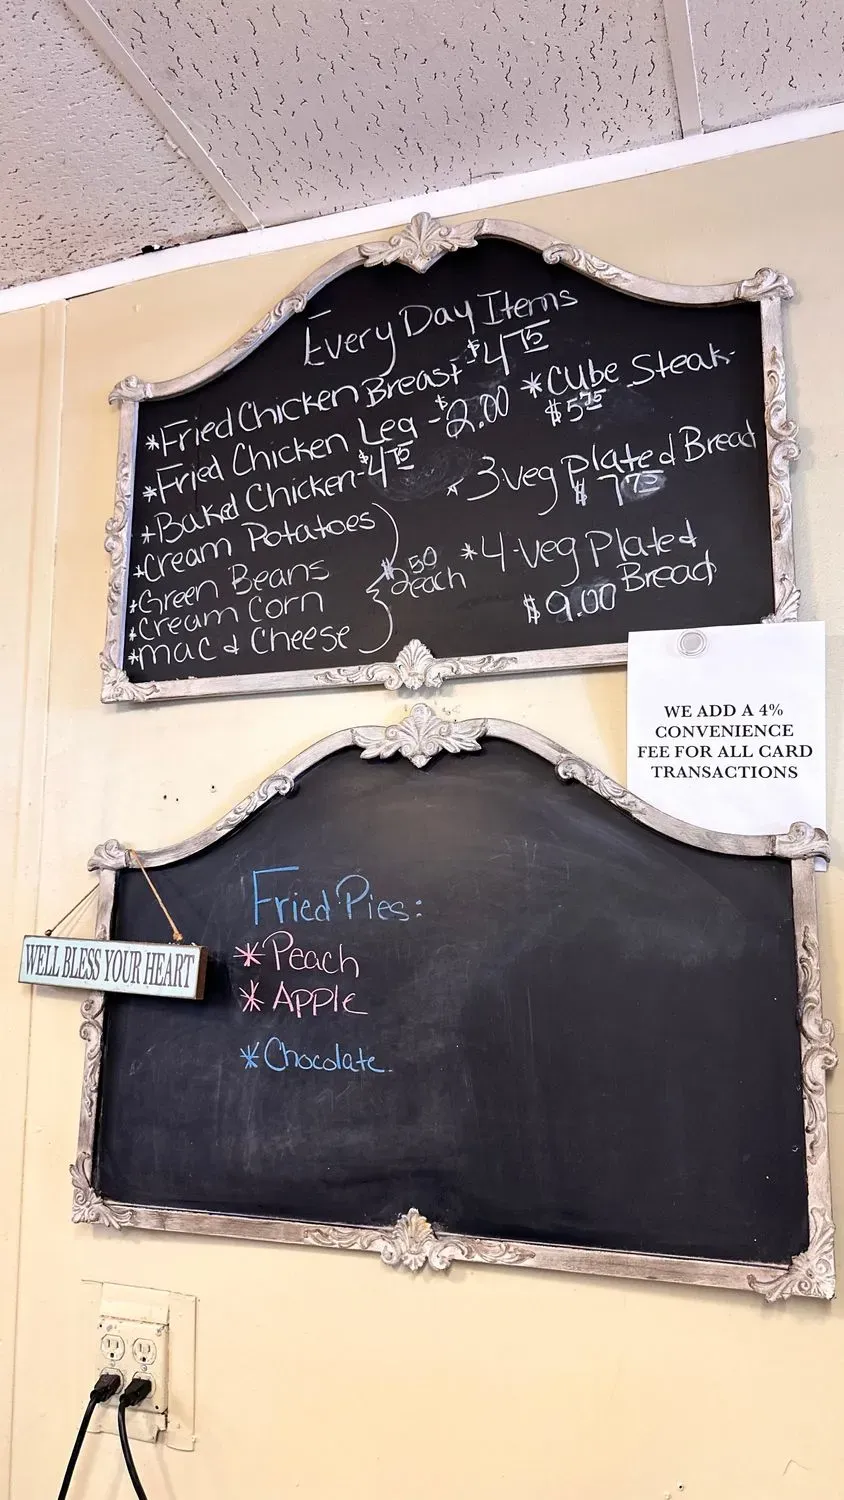 Every Day Items
*Fried Chicken Breast $4.75
*Fried Chicken Leg - $2.00
*Baked Chicken - $4.75
*Cream Potatoes
*Green Beans
*Cream Corn
*Mac & Cheese
$2.50 each
*Cube Steak-
$5.75
*3 veg Plated Bread
$7.75
*4-veg Plated
Bread
$9.00
WE ADD A 4%
CONVENIENCE
FEE FOR ALL CARD
TRANSACTIONS
Fried Pies:
*Peach
*Apple
*Chocolate
WELL BLESS YOUR HEART